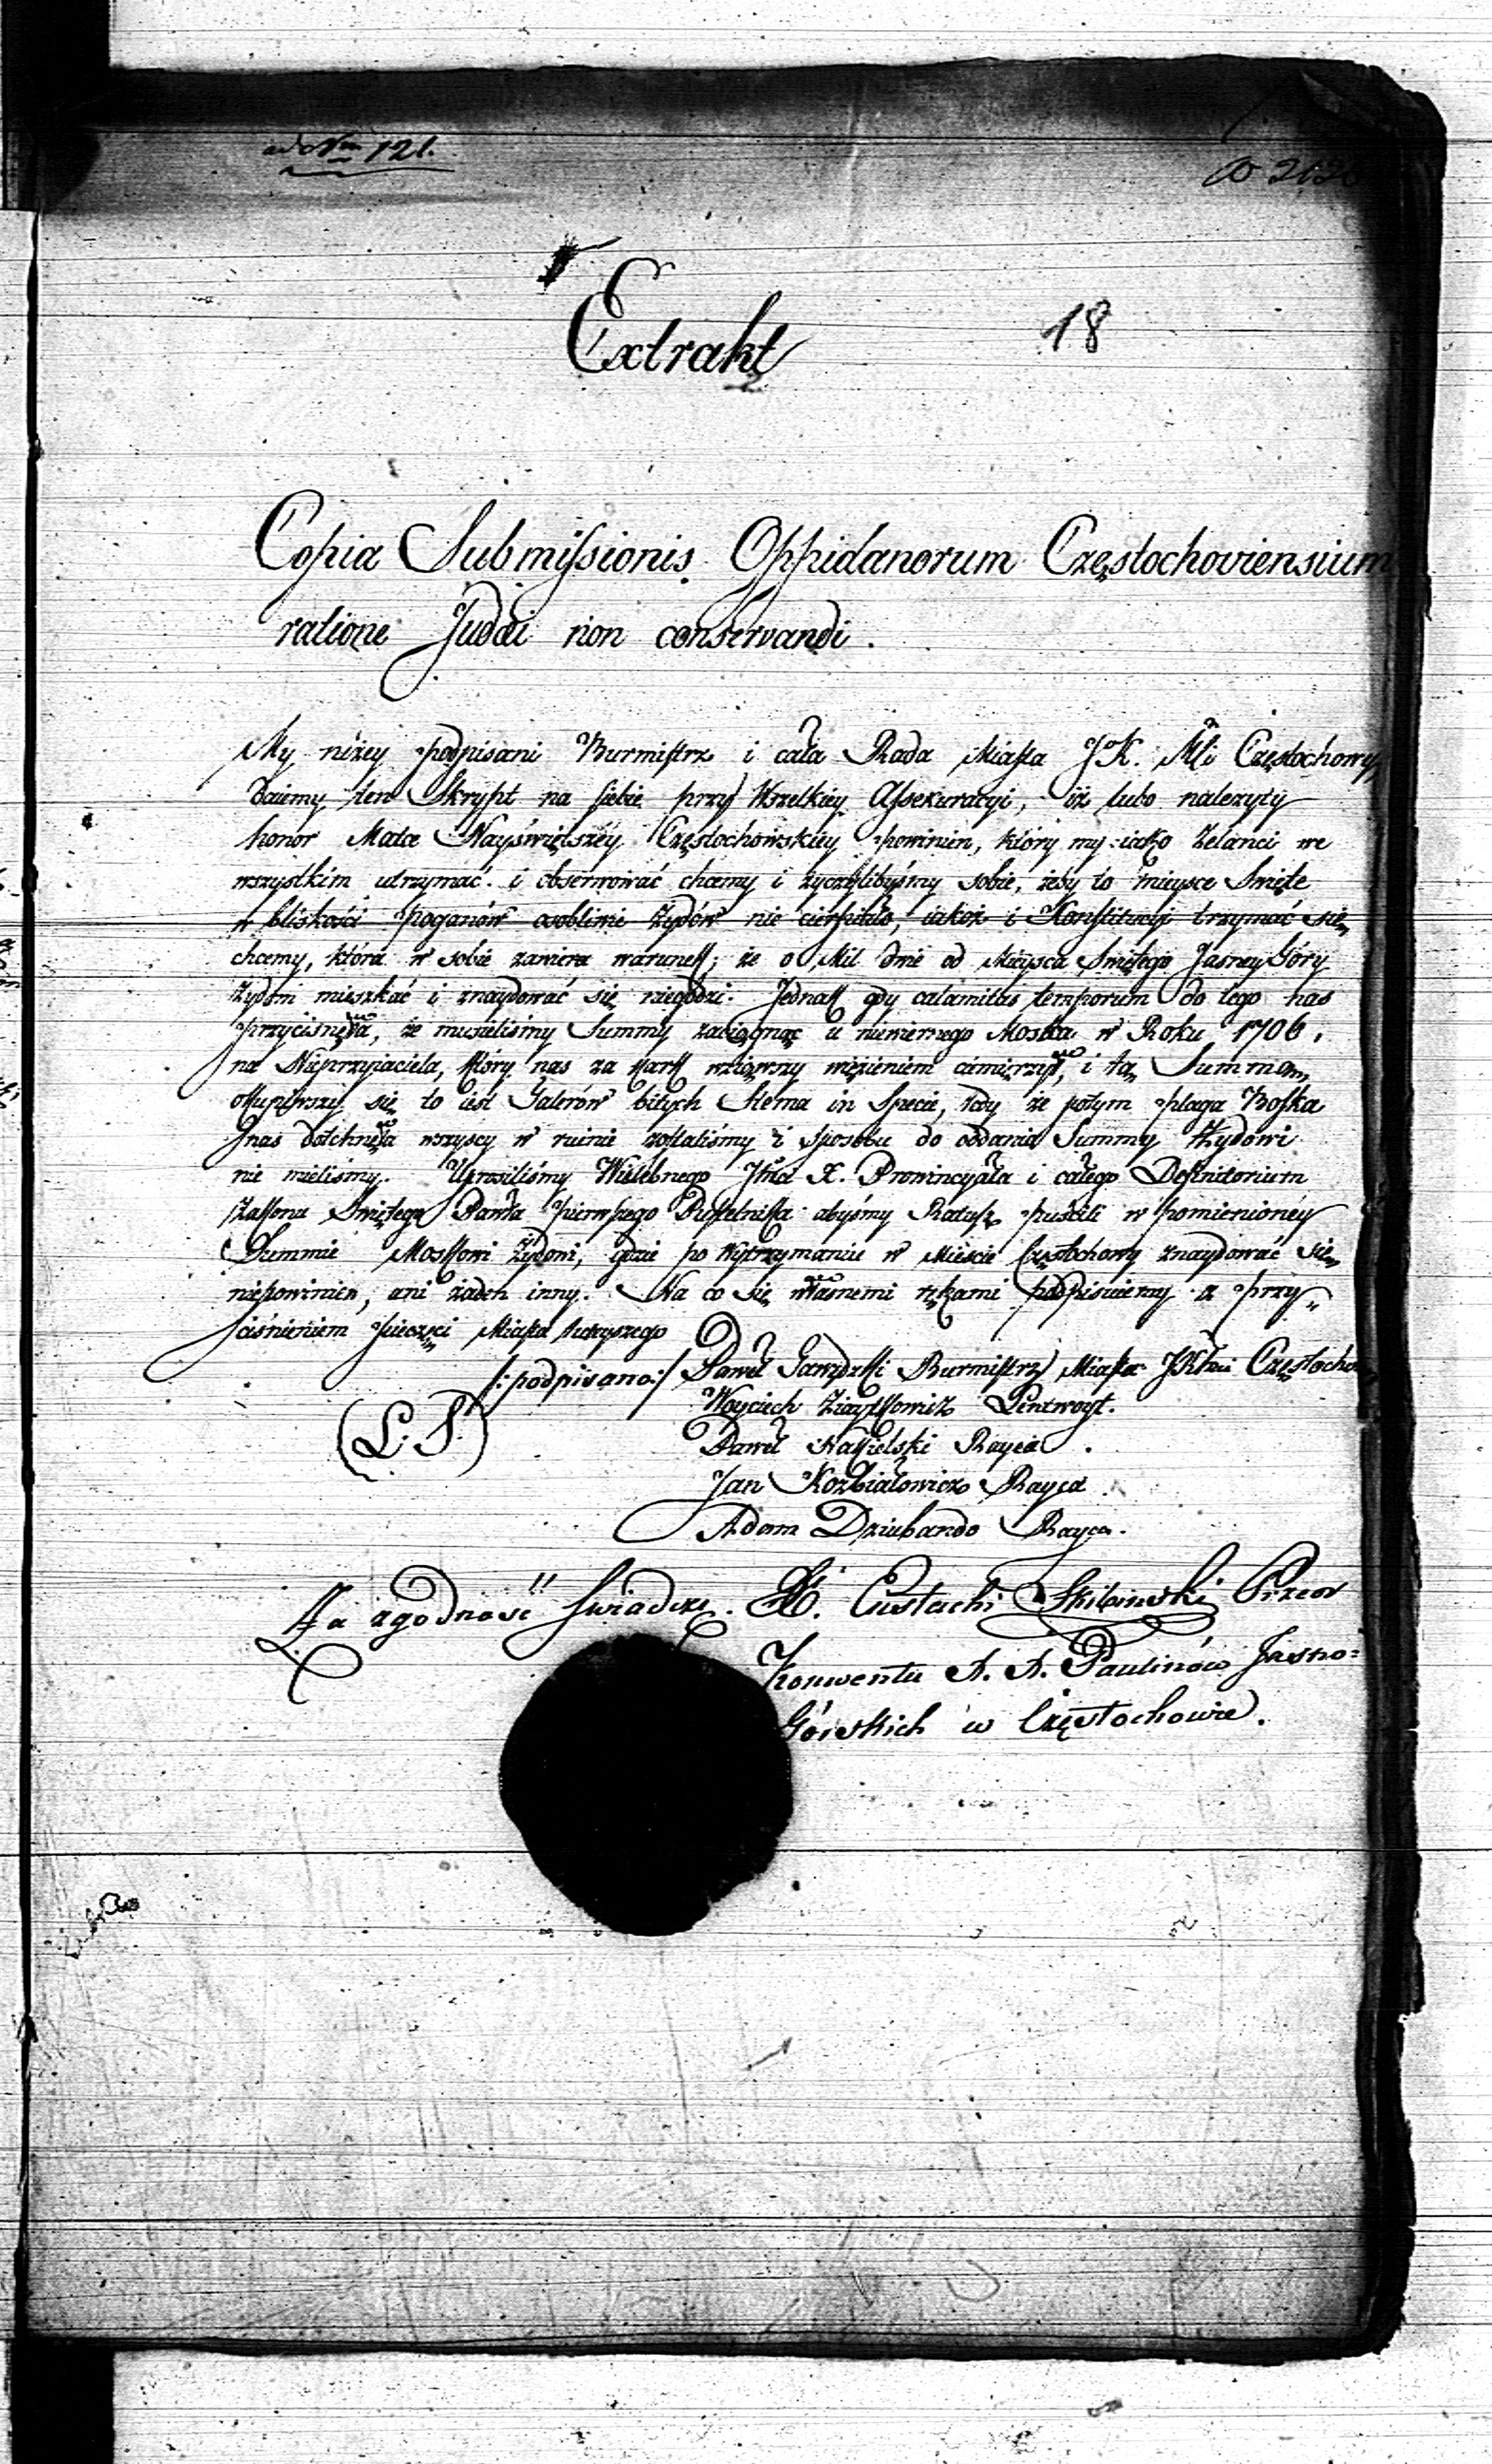 ad Num 121.
18
Extrakt
Copia Submissionis Oppidanorum Częstochoviensium
ratione Judæi non conservandi.
My niżey podpisani Burmistrz i cała Rada Miasta JK. Mci Częstochowy,
daiemy ten Skrypt na siebie przy Wszelkiey Assekuracyi, iż lubo należyty
honor Matce Nayświętszey Częstochowskiey powinien, który my iako Zelanci we
wszystkim utrzymać i obserwować chcemy i życzelibyśmy sobie, żeby to mieysce Święte
w bliskości Poganów osobliwie Żydów nie cierpiało, iakoż i Konstitucyi trzymać się
chcemy, która w sobie zawiera warunek; że o Mil dwie od Mieysca Świętego Jasney Góry
Żydom mieszkać i znaydować się niegodzi. Jednak gdy calamitas temporum do tego nas
przycisnęła, że musieliśmy Summy zaciągnąć u niewiernego Moska w Roku 1706.
na Nieprzyjaciela, który nas za kark wziąwszy więzieniem ciemiężył, i tą Summą
okupiwszy się to iest Talerów bitych Sterna in Specie, tedy że potym plaga Boska
nas dotchnęła wszyscy w ruinie zostaliśmy i sposobu do oddania Summy Żydowi
nie mieliśmy. Uprosiliśmy Wielebnego Jmci X. Prowincyała i całego Definitorium
Zakonu Świętego Pawła Pierwszego Pustelnika abyśmy Ratusz puścili w pomienioney
Summie Moskowi Żydowi, gdzie po Wytrzymaniu w Mieście Częstochowy znaydować się
niepowinien, ani żaden inny. Na co się własnemi rękami podpisuiemy z przy„
ciśnieniem pieczęci Miasta tuteyszego
/:podpisano:/ Paweł Gawęzki Burmistrz Miasta JKMci Częstocho
Woyciech Lentwoyt.
(L.S.) Paweł Rayca.
Jan Kozbiałowicz Rayca.
Adam Dziubando Rayca.
Za zgodność świadczę. X. Eustachi Skibiński Przeor
Konwentu A. A. Paulinów Jasno=
Górskich w Częstochowie.